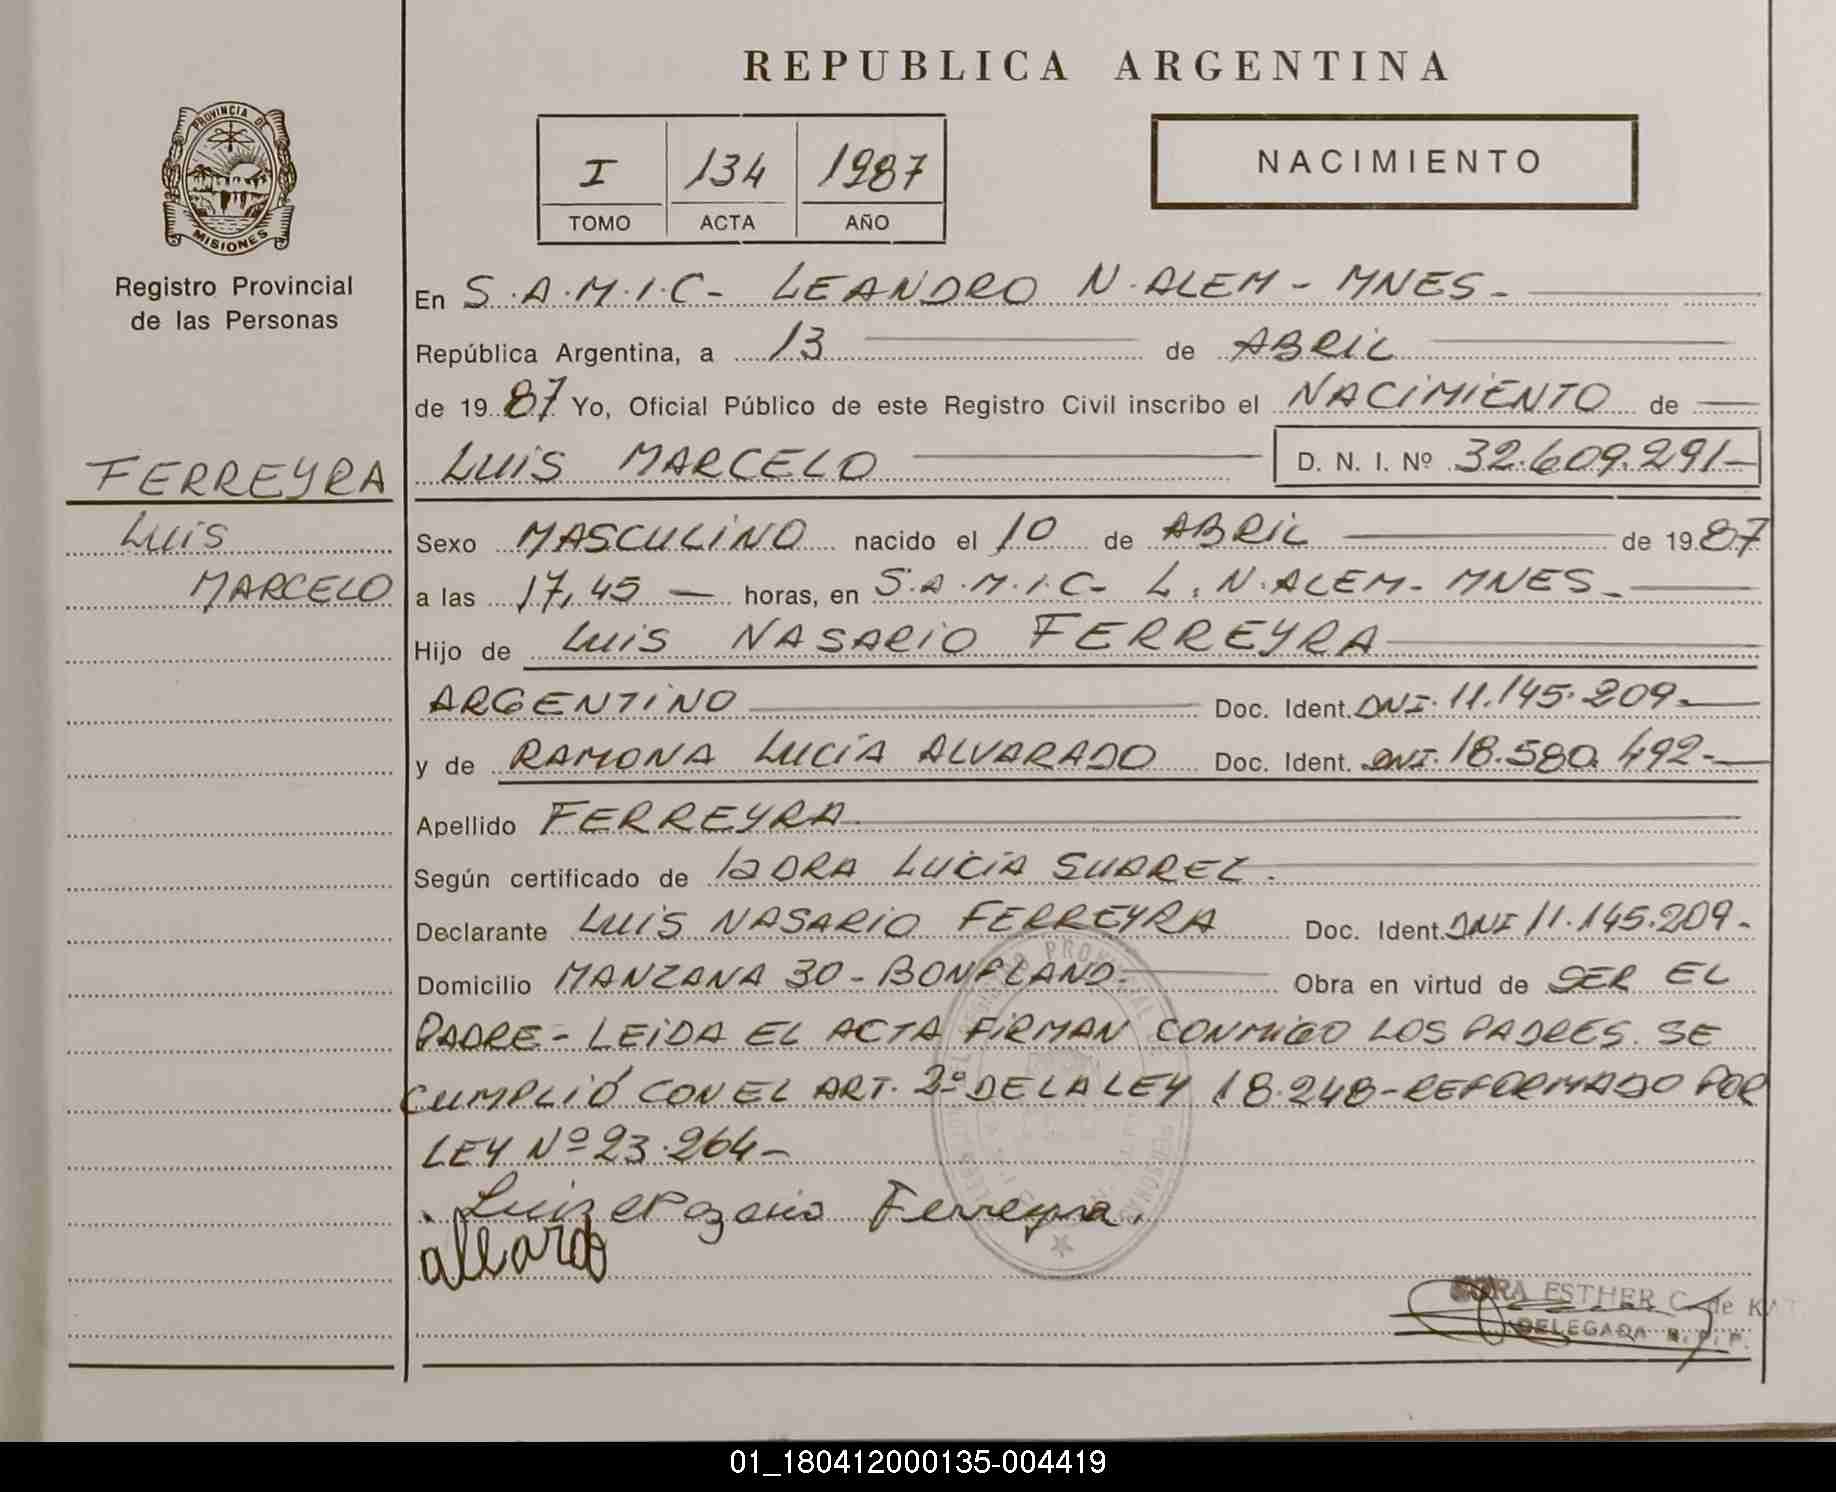 REPUBLICA ARGENTINA
PROVINCIA DE
MISIONES
Registro Provincial
de las Personas
I 134 1987
TOMO ACTA AÑO
NACIMIENTO
En S.A.M.I.C- LEANDRO N. ALEM - MNES-
República Argentina, a 13 de ABRIL
de 1987 Yo, Oficial Público de este Registro Civil inscribo el NACIMIENTO de
FERREYRA
LUIS MARCELO D. N. I. Nº 32.609.291-
LUIS
Sexo MASCULINO nacido el 10 de ABRIL de 1987
MARCELO
a las 17,45 horas, en S.A.M.I.C- L. N. ALEM- MNES-
Hijo de LUIS NASARIO FERREYRA
ARGENTINO Doc. Ident. DNI. 11.145.209-
y de RAMONA LUCÍA ALVARADO Doc. Ident. DNI. 18.580.492-
Apellido FERREYRA
Según certificado de la DRA LUCÍA SUAREZ.
Declarante LUIS NASARIO FERREYRA Doc. Ident. DNI 11.145.209-
Domicilio MANZANA 30 - BONPLAND. Obra en virtud de SER EL
PADRE - LEIDA EL ACTA FIRMAN CONMIGO LOS PADRES. SE
CUMPLIÓ CON EL ART. 2º DE LA LEY 18.248-REFORMADO POR
LEY Nº 23.264-
Ferreyra.
ESTHER C. de
DELEGADA R. P. P.
01_180412000135-004419